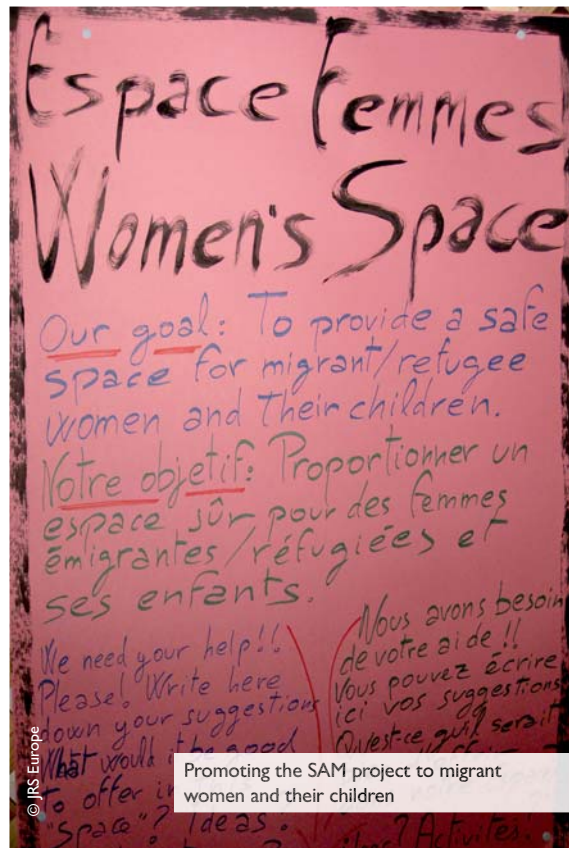 Espace Femmes
Women's Space
Our goal: To provide a safe
space for migrant/refugee
women and their children.
Notre objetif: Proportionner un
espace sûr pour des femmes
émigrantes/réfugiées et
ses enfants.
We need your help!!
Please! Write here
down your suggestions
What would it be good
to offer in
"Space"? Ideas?
Nous avons besoin
de votre aide!!
Vous pouvez écrire
ici vos suggestions
Qu'est-ce qu'il serait
? Activités?
© JRS Europe
Promoting the SAM project to migrant
women and their children